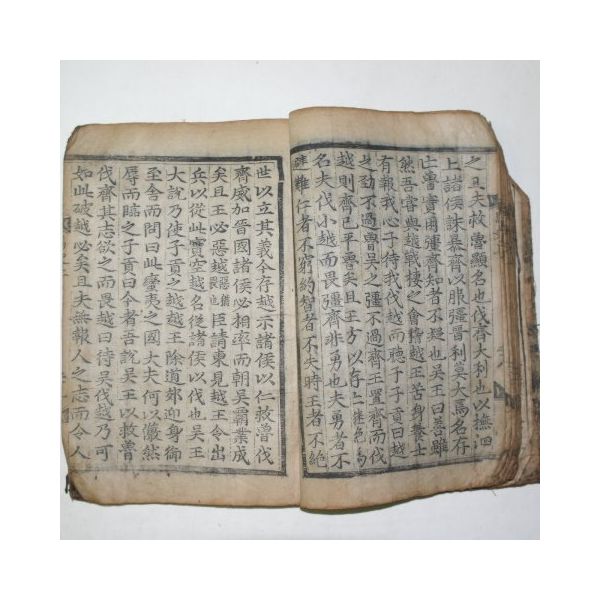 之且夫救魯顯名也伐齊大利也以撫四
上諸侯誅暴齊以服彊晉利莫大焉名存
亡魯實困彊齊智者不疑也吳王曰善雖
然吾嘗與越戰棲之會稽越王苦身養士
有報我心子待我伐越而聽子子貢曰越
之勁不過魯吳之彊不過齊王置齊而伐
越則齊已平魯矣且王方以存亡継絶為
名夫伐小越而畏彊齊非勇也夫勇者不
避難仁者不窮約智者不失時王者不絶
世以立其義今存越示諸侯以仁救魯伐
齊威加晉國諸侯必相率而朝吳霸業成
矣且王必惡越臣請東見越王令出
兵以從此實空越名從諸侯以伐也吳王
大說乃使子貢之越越王除道郊迎身御
至舍而問曰此蠻夷之國大夫何以儼然
辱而臨之子貢曰今者吾說吳王以救魯
伐齊其志欲之而畏越曰待吳伐越乃可
如此破越必矣且夫無報人之志而令人